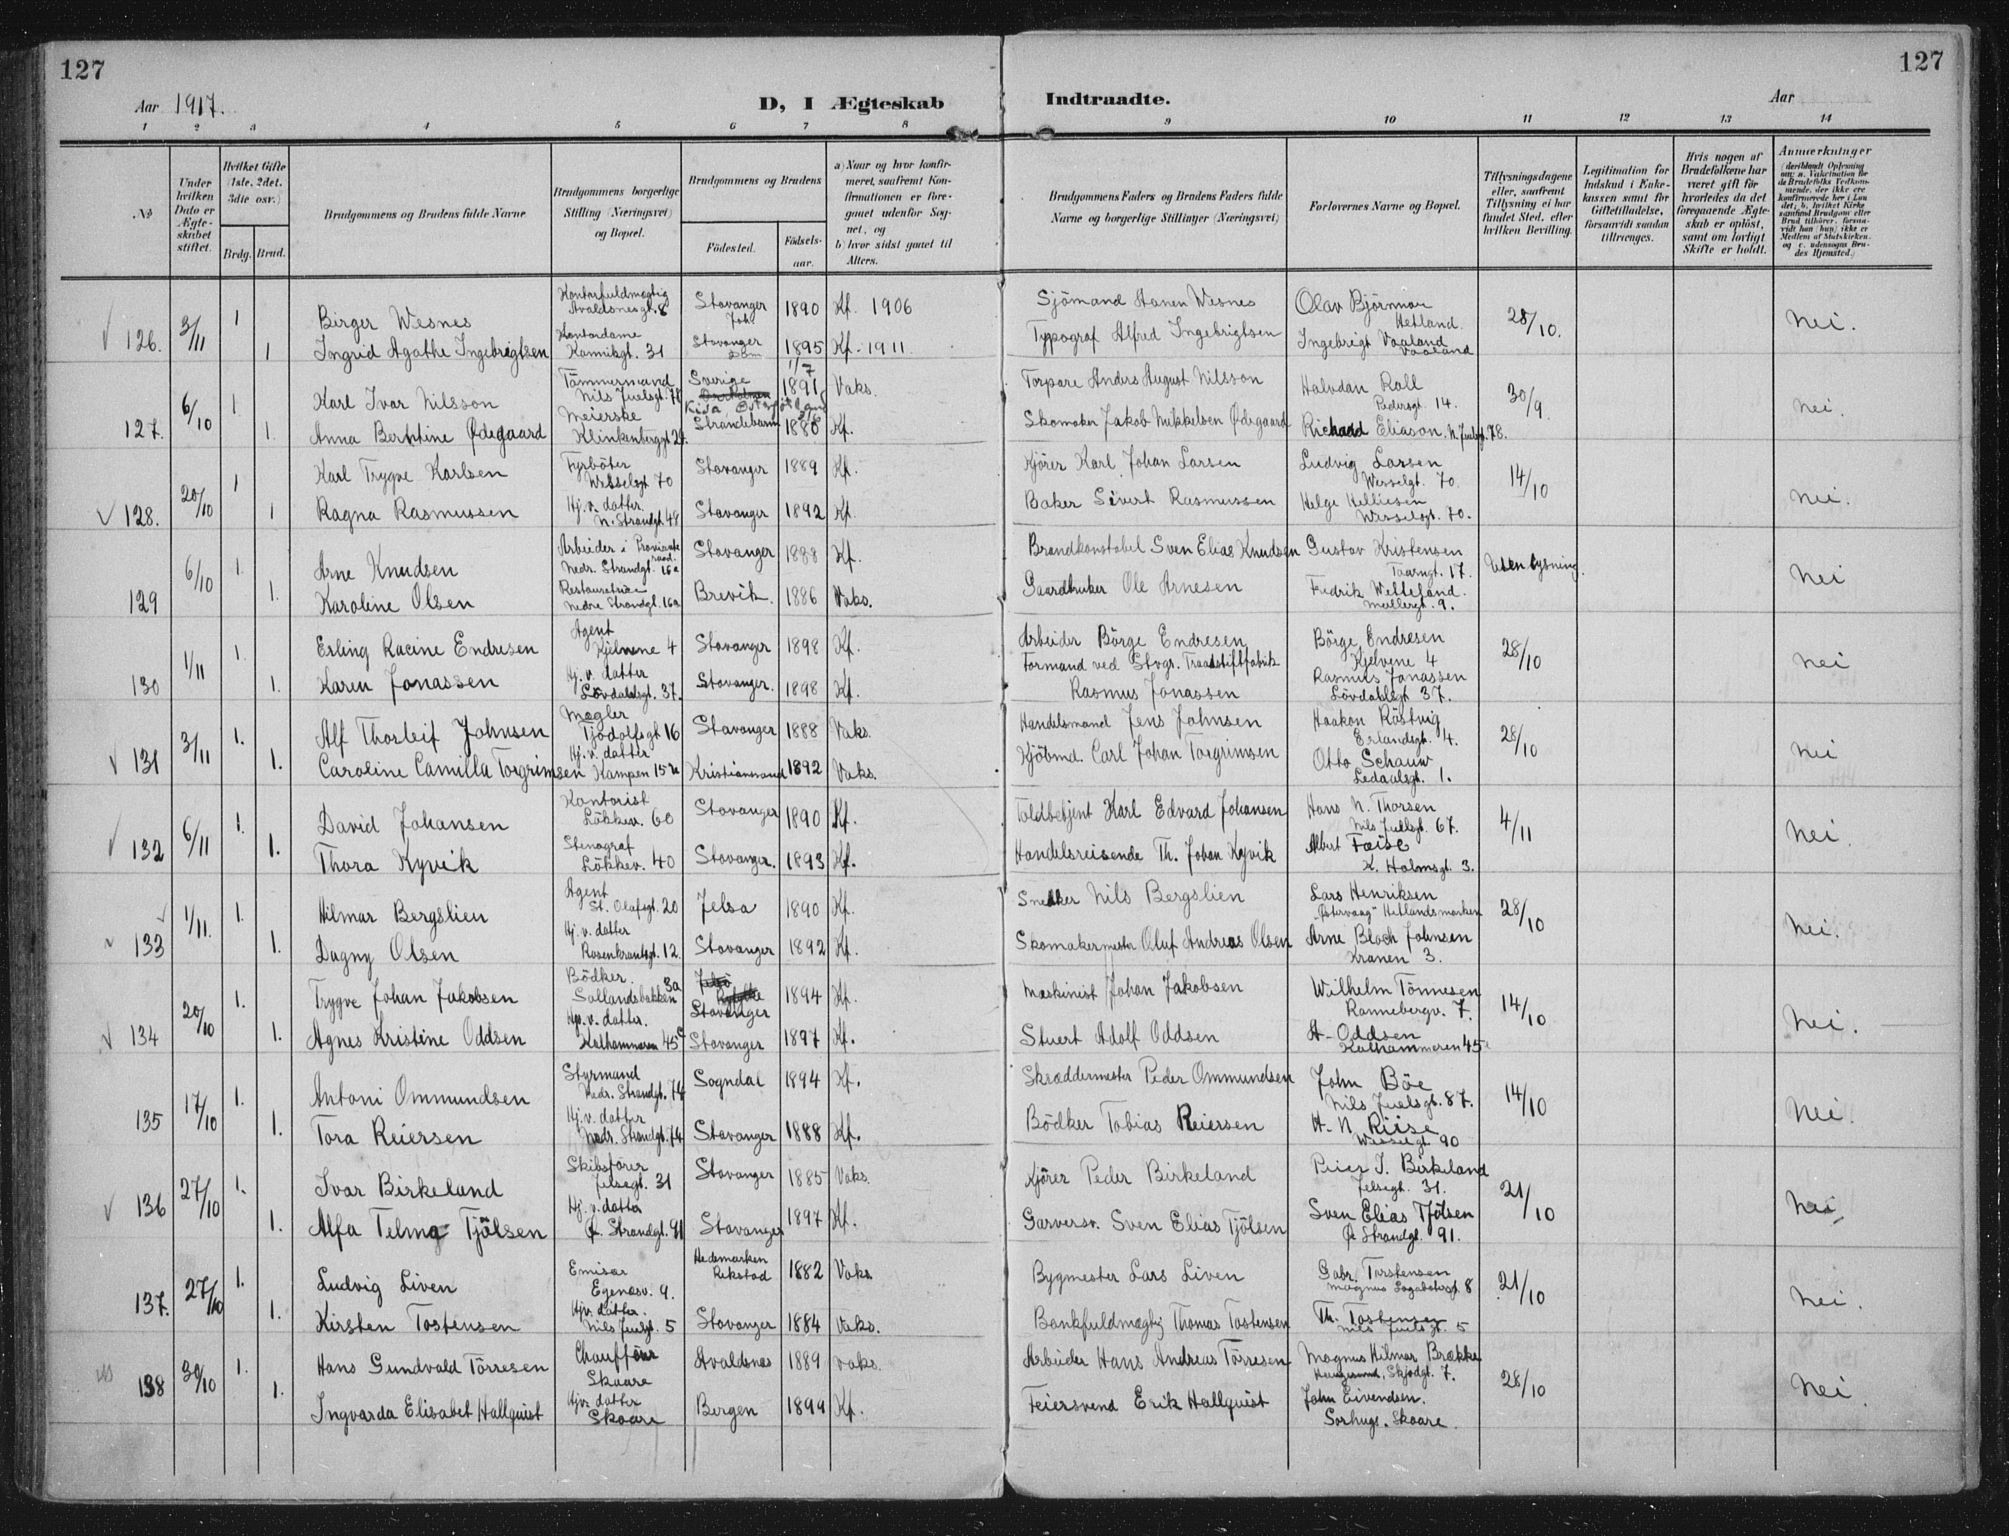 127
127
Aar 1917.
D, I Ægteskab Indtraadte.
Aar
1 2 3 4 5 6 7 8 9 10 11 12 13 14
No
Under hvilken Dato er Ægteskabet stiftet.
Hvilket Gifte (1ste, 2det, 3die osv.)
Brdg. Brud.
Brudgommens og Brudens fulde Navne
Brudgommens borgerlige Stilling (Næringsvei) og Bopæl.
Brudgommens og Brudens
Fødested.
Fødselsaar.
a) Naar og hvor konfirmeret, saafremt Konfirmationen er foregaaet udenfor Sognet, og
b) hvor sidst gaaet til Alters.
Brudgommens Faders og Brudens Faders fulde Navne og borgerlige Stillinger (Næringsvei)
Forlovernes Navne og Bopæl.
Tillysningsdagene eller, saafremt Tillysning ei har fundet Sted, efter hvilken Bevilling.
Legitimation for Indskud i Enkekassen samt for Giftetilladelse, forsaavidt saadan tiltrænges.
Hvis nogen af Brudefolkene har været gift før hvorledes da det foregaaende Ægteskab er opløst, samt om lovligt Skifte er holdt.
Anmærkninger
(deriblandt Oplysning om: a. Vakcination for de Brudefolks Vedkommende, der ikke ere konfirmerede her i Landet; b. hvilket Kirkesamfund Brudgom eller Brud tilhører, forsaavidt han (hun) ikke er Medlem af Statskirken. og c. udensogns Brudes Hjemsted.)
126. 3/11 1 Birger Wesnes Kontorfuldmægtig Avaldsnesgt. 8 Stavanger 1890 Kf. 1906 Sjömand Hanen Wesnes Olav Björnnov Hetland 28/10. Nei.
1 Ingrid Agathe Ingebrigtsen Kontordame Kannikgt. 31 Stavanger Dom 1895 Kf. 1911 Typograf Alfred Ingebrigtsen Ingebrigt Vaaland Vaaland
127. 6/10 1. Karl Ivar Nilsson Tömmermand Nils Juelsgt. 78 Sverige Kisa Östergötland 1/7 1891 Vaks. Torpare Anders August Nilsson Halvdan Roll Pedersgt. 14. 30/9. Nei.
1. Anna Berthine Ødegaard Meierske Klinkenberggt 29. Strandebarm 1886 Kf. Skomaker Jakob Mikkelsen Ødegaard Richard Eliason. N. Juelsgt. 78.
128. 20/10 1 Karl Trygve Karlsen Fyrböter Wesselsgt 70 Stavanger 1889 Kf. Kjörer Karl Johan Larsen Ludvig Larsen Wesselgt. 70. 14/10 Nei.
1 Ragna Rasmussen Hj. v. datter. N. Strandgt. 48 Stavanger 1892 Kf. Baker Sivert Rasmussen Helge Helliesen Wesselsgt. 70.
129 6/10 1. Arne Knudsen Arbeider i Nedr. Strandgt. 16a Stavanger 1888 Kf. Brandkonstabel Sven Elias Knudsen Gustav Kristensen Taarngt. 17. Uten lysning. Nei
1. Karoline Olsen Restauratrice Nedre Strandgt. 16a Brevik 1886 Vaks. Gaardbruker Ole Arnesen Fredrik Wetteland. Møllergt. 9.
130 1/11 1. Erling Racine Endresen Agent Kjelvene 4 Stavanger 1898 Kf. Arbeider Börge Endresen Börge Endresen Kjelvene 4 28/10 Nei
1. Karen Jonassen Hj. v. datter Lövdahlsgt. 37. Stavanger. 1898 Kf. Formand ved Stvgr. Traadstiftfabrik Rasmus Jonassen Rasmus Jonassen Lövdahlsgt 37.
131 3/11 1. Alf Thorleif Johnsen Mægler Tjodolfsgt 16 Stavanger 1888 Vaks. Handelsmand Jens Johnsen Haakon Röstvig Erlandsgt. 4. 28/10 Nei
1. Caroline Camilla Torgrimsen Hj. v. datter Kampen 15a Kristianssand 1892 Vaks. Kjöbmd. Carl Johan Torgrimsen Otto Schauw Ledaalsgt. 1.
132 6/11 1. David Johansen Kontorist Lökkev. 60 Stavanger 1890 Kf. Toldbetjent Karl Edvard Johansen Hans N. Thorsen Nils Juelsgt. 67. 4/11 Nei.
1. Thora Kyvik Stenograf Lökkev. 40 Stavanger. 1893 Kf. Handelsreisende Th. Johan Kyvik Albert Feise K. Holmsgt. 3.
133 1/11. 1. Hilmar Bergslien Agent St. Olafsgt. 20 Jelsa 1890 Kf. Snekker Nils Bergslien Lars Henriksen "Østervaag" Hetlandsmarken 28/10 Nei.
1. Dagny Olsen Hj. v. datter Rosenkrantsgt. 12. Stavanger 1892 Kf. Skomakermester Oluf Andreas Olsen Arne Bloch Johnsen Kranen 3.
134 20/10 1. Trygve Johan Jakobsen Bödker Sollandsbakken 3a Stavanger 1894 Kf. Maskinist Johan Jakobsen Wilhelm Tönnesen Rannebergv. 7. 14/10 Nei.
1. Agnes Kristine Oddsen Hj. v. datter. Kalhammeren 45 Stavanger 1897 Kf. Stuert Adolf Oddsen A. Oddsen Kalhammeren 45
135 17/10 1. Antoni Ommundsen Styrmand Nedr. Strandgt. 74 Sogndal 1894 Kf. Skræddermester Peder Ommundsen John Böe Nils Juelsgt. 87. 14/10 Nei.
1. Tora Reiersen Hj. v. datter Nedr. Strandgt. 74 Stavanger 1888 Kf. Bödker Tobias Reiersen H. N. Riise Wesselgt. 90
136 27/10 1. Ivar Birkeland Skibsförer Jelsegt. 31 Stavanger 1885 Vaks. Kjörer Peder Birkeland Peder I. Birkeland Jelsegt. 31. 21/10 Nei
1. Alfa Telma Tjölsen Hj. v. datter Ø. Strandgt. 91 Stavanger 1897 Kf. Garversv. Sven Elias Tjölsen Sven Elias Tjölsen Ø Strandgt. 91.
137. 27/10 1. Ludvig Liven Emisær Egenesv. 9. Hedemarken 1882 Vaks. Bygmester Lars Liven Gabr. Torstensen Magnus Lagabötersgt 8 21/10 Nei.
1. Kirsten Tostensen Hjv. datter. Nils Juelsgt. 5 Stavanger 1884 Vaks. Bankfuldmægtig Thomas Tostensen Th. Tostensen Nils Juelsgt. 5
138 30/10 1. Hans Gundvald Törresen Chauffeur Skaare Avaldsnes 1889 vaks. Arbeider Hans Andreas Törresen Magnus Hilmar Brække Haugesund, Skjoldgt. 7. 28/10 Nei
1. Ingvarda Elisabet Hallquist Hjv. datter Skaare Bergen 1899 Kf. Feiersvend Erik Hallquist John Eivendsen. Sorhaug. Skaare.